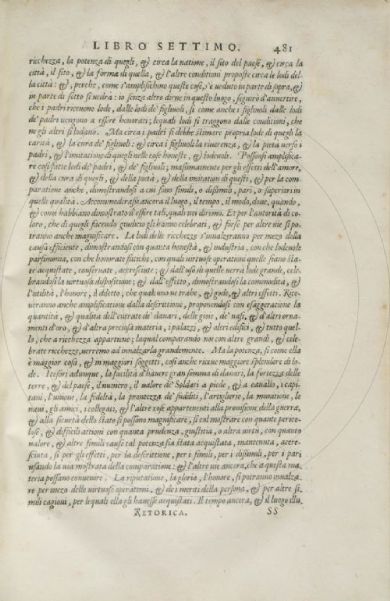 LIBRO SETTIMO. 481
ricchezza, la potenza di quegli, & circa la natione, il sito del paese, & circa la
città, il sito, & la forma di quella, & l'altre conditioni proposte circa le lodi del-
la città: &, perche, come s'amplifichino queste cose, s'è veduto in parte di sopra, &
in parte di sotto si vedrà: io senza altro dirne in questo luogo, seguirò d'avvertire,
che i padri ricevono lode, dalle lodi de' figliuoli, sì come anche i figliuoli dalle lodi
de' padri vengono a esser honorati; lequali lodi si traggono dalle conditioni, che
negli altri si lodano. Ma circa i padri si debbe stimare propria lode di quegli la
carità, & la cura de' figliuoli: & circa i figliuoli la riverenza, & la pietà verso i
padri, & l'imitation di quegli nelle cose honeste, & lodevoli. Possonsi amplifica-
re così fatte lodi de' padri, & de' figliuoli; massimamente per gli effetti dell'amore,
& della cura di questi, & della pietà, & della imitation di questi, & per la com-
paratione anche, dimostrandosi a cui sieno simili, o dissimili, pari, o superiori in
quelle qualità. Accommodasi ancora il luogo, il tempo, il modo, dove, quando,
& come habbiano dimostrato d'esser tali, quali noi diremo. Et per l'autorità di co-
loro, che di quegli facendo giudicio gli habbiano celebrati, & fosse per altre vie si po-
tranno anche magnificare. La lode delle ricchezze s'innalzeranno per mezo della
causa efficiente, dimostrandosi con quanta honestà, & industria, con che lodevole
parsimonia, con che honorate fatiche, con quali virtuose operationi quelle sieno sta-
te acquistate, conservate, accresciute: & dall'uso di quelle nerrà lode grande, cele-
brandosi la virtuosa dispositione: & dall'effetto, dimostrandosi la commodità, &
l'utilità, l'honore, il diletto, che quali uno ne trahe, & gode, & altri effetti. Rice-
veranno anche amplificatione dalla definitione, proponendosi con esaggeratione la
quantità, & qualità dell'entrate de' danari, delle gioie, de' vasi, & d'altri orna-
menti d'oro, & d'altra preciosa materia, i palazzi, & altri edifici, & tutto quel-
lo, che a ricchezza appartiene; laqual comparando noi con altre grandi, & cele-
brate ricchezze, verremo ad innalzarla grandemente. Ma la potenza, sì come ella
è maggior cosa, & in maggiori soggetti, così anche riceve maggiore splendore di lo-
de. I tesori adunque, la facilità d'haver gran somma di danari, la fortezza delle
terre, & del paese, il numero, il valore de' Soldati a piede, & a cavallo, i capi-
tani, l'unione, la fedeltà, la prontezza de' sudditi, l'artiglierie, la munitione, le
navi, gli amici, i collegati, & l'altre cose appartenenti alla provisione della guerra,
& alla sicurtà dello stato si possono magnificare, sì col mostrare con quante perico-
lose, & difficili attioni con quanta prudenza, giustitia, o altra virtù, con quanto
valore, & altre simili cause tal potenza sia stata acquistata, mantenuta, accre-
sciuta, sì per gli effetti, per la definitione, per i simili, per i dissimili, per i pari
usando la via mostrata della comparatione: & l'altre vie ancora, che a questa ma-
teria possano convenire. La riputatione, la gloria, l'honore, si potranno innalza-
re per mezo delle virtuose operationi, & de i meriti della persona, & per altre si-
mili cagioni, per lequali ella gli havesse acquistati. Il tempo ancora, & il luogo illu-
RETORICA. SS